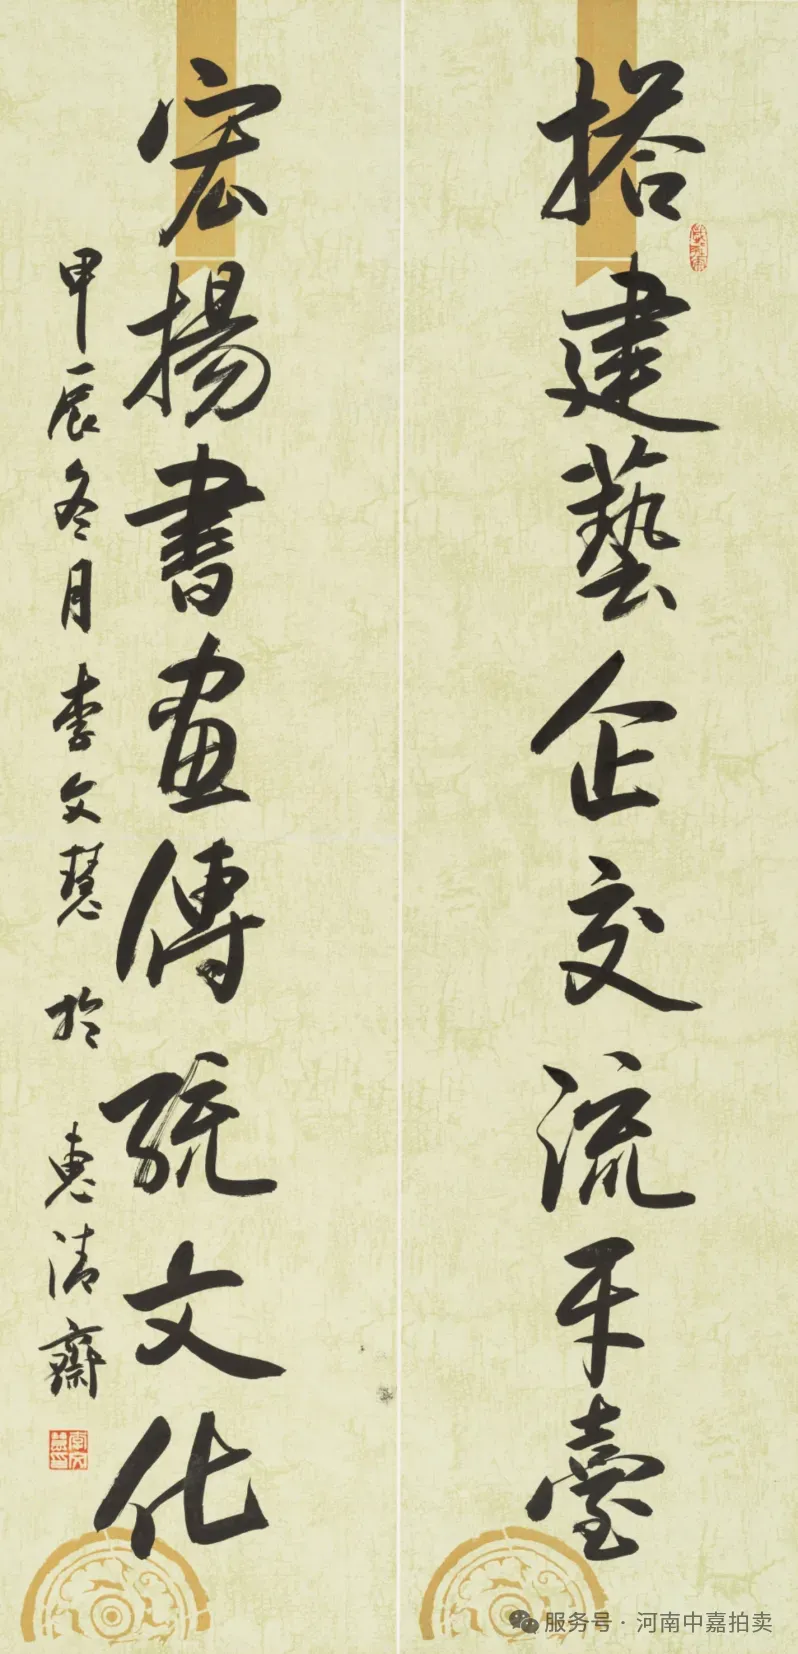 搭建藝企交流平臺
宏揚書畫傳統文化
甲辰冬月李文慧於惠清齋
服务号·河南中嘉拍卖